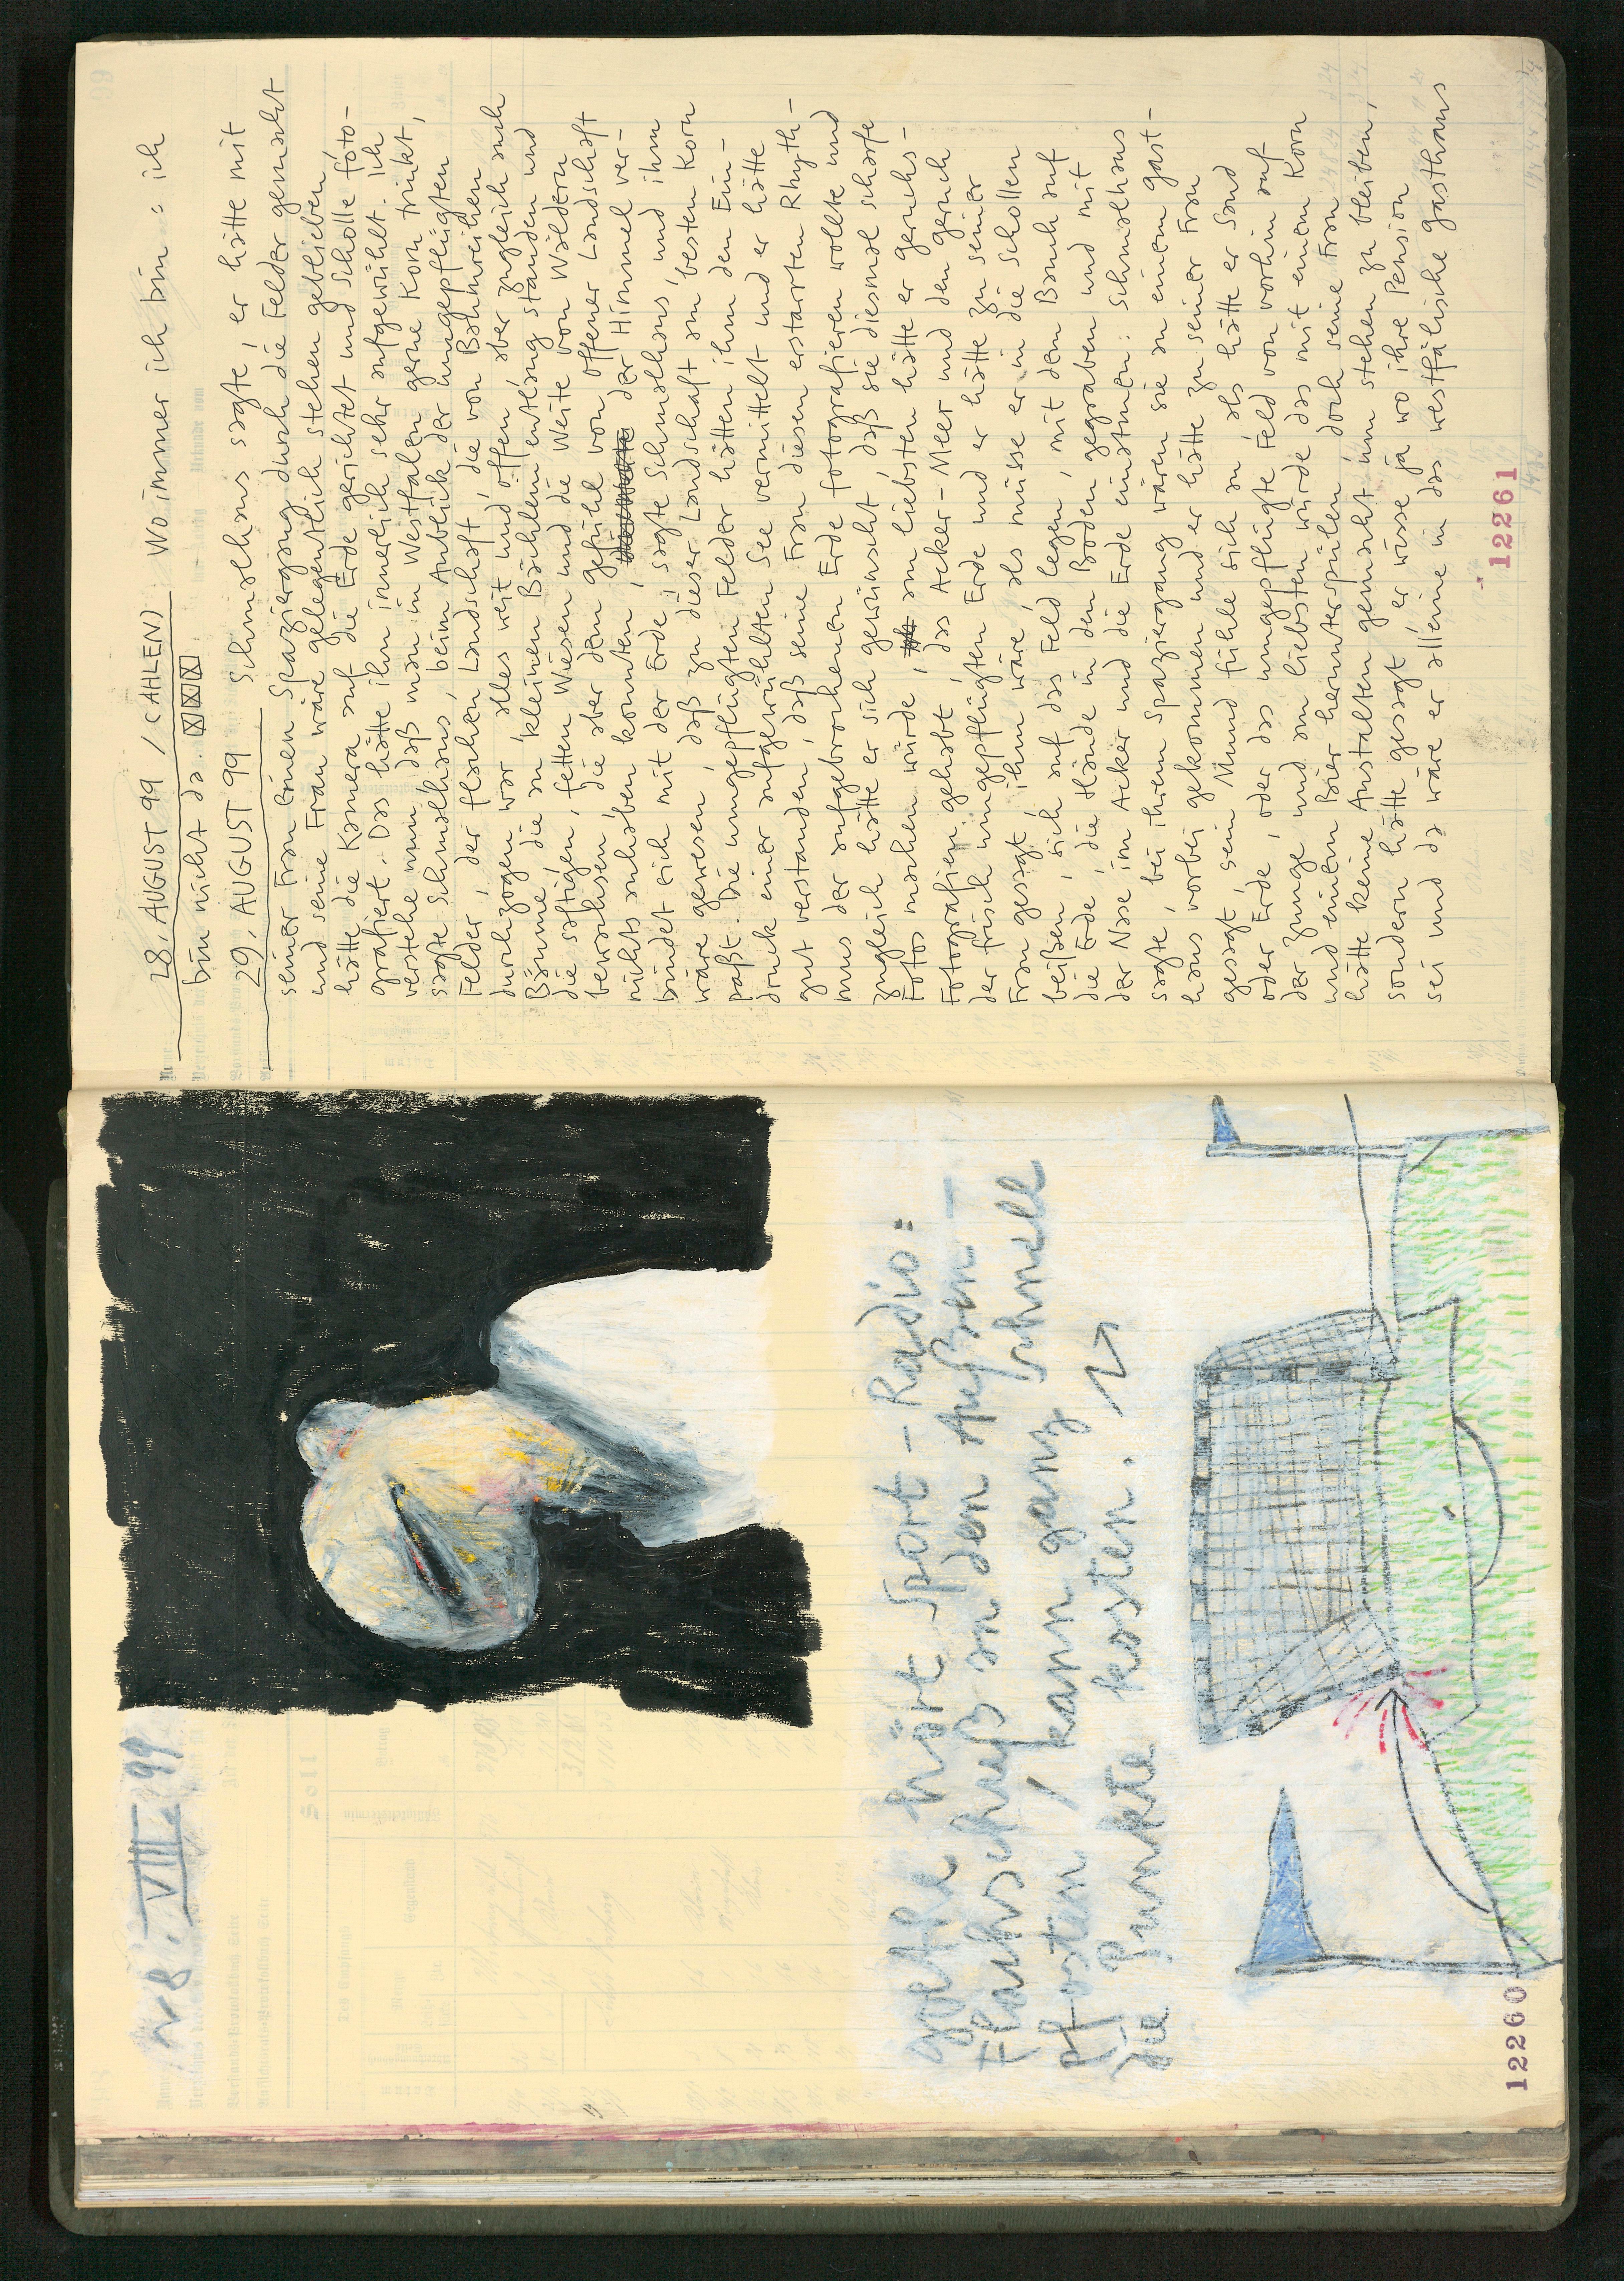 28. VIII. 99
goethe hört Sport-Radio:
Flachschuß an den Außen-
pfosten / kann ganz schnell
die Punkte kosten.
12260
28. AUGUST 99 / (AHLEN) Wo immer ich bin: ich
bin nicht da.
29. AUGUST 99 Schmalhans sagte, er hätte mit
seiner Frau einen Spaziergang durch die Felder gemacht
und seine Frau wäre gelegentlich stehen geblieben,
hätte die Kamera auf die Erde gerichtet und Scholle foto-
grafiert. Das hätte ihn innerlich sehr aufgewühlt. Ich
verstehe nun, daß man in Westfalen gerne Korn trinkt,
sagte Schmalhans, beim Anblick der umgepflügten
Felder, der flachen Landschaft, die von Bahnreihen
durchzogen war, alles weit und offen, aber zugleich auch
Bäume, die an kleinen Bächlein entlang standen und
die saftigen, fetten Wiesen und die Weite von Wäldern
bewachsen, die aber dem Gefühl von offener Landschaft
nichts anhaben konnten, der Himmel ver-
bindet sich mit der Erde, sagte Schmalhans, und ihm
wäre gewesen, daß zu dieser Landschaft am besten Korn
paßt. Die umgepflügten Felder hätten ihm den Ein-
druck einer aufgewühlten See vermittelt und er hätte
gut verstanden, daß seine Frau diesen erstarrten Rhyth-
mus der aufgebrochenen Erde fotografieren wollte und
zugleich hätte er sich gewünscht, daß sie diesmal scharfe
Fotos machen würde, am liebsten hätte er geruchs-
Fotografien gehabt, das Acker-Meer und den geruch
der frisch umgepflügten Erde und er hätte zu seiner
Frau gesagt, ihm wäre, als müsse er in die Schollen
beißen, sich auf das Feld legen, mit dem Bauch auf
die Erde, die Hände in den Boden gegraben und mit
der Nase im Acker und die Erde einatmen. Schmalhans
sagte, bei ihrem Spaziergang wären sie an einem gast-
haus vorbei gekommen und er hätte zu seiner Frau
gesagt, sein Mund fühle sich an, als hätte er Sand
oder Erde, oder das umgepflügte Feld von vorhin auf
der Zunge und am liebsten würde das mit einem Korn
und einem Bier herunterspülen, doch seine Frau
hätte keine Anstalten gemacht, um stehen zu bleiben,
sondern hätte gesagt, er wisse ja wo ihre Pension
sei und da wäre er alleine in das westfälische gasthaus
12261